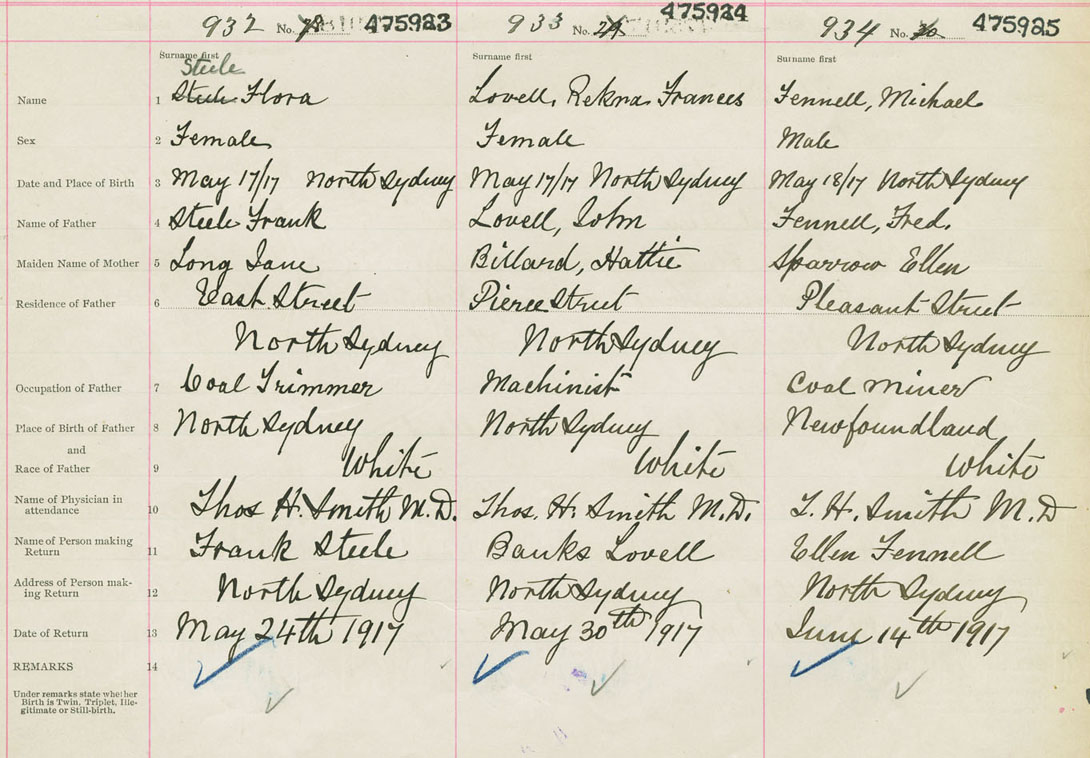 932 No. 475923
933 No. 29 475924
934 No. 30 475925
Surname first Surname first Surname first
Steele
Name 1 Steele Flora Lovell, Rekna Frances Fennell, Michael
Sex 2 Female Female Male
Date and Place of Birth 3 May 17/17 North Sydney May 17/17 North Sydney May 18/17 North Sydney
Name of Father 4 Steele Frank Lovell, John Fennell, Fred.
Maiden Name of Mother 5 Long Jane Billard, Hattie Sparrow Ellen
Residence of Father 6 Street Pierce Street Pleasant Street
North Sydney North Sydney North Sydney
Occupation of Father 7 Coal Trimmer Machinist Coal Miner
Place of Birth of Father 8 North Sydney North Sydney Newfoundland
and
Race of Father 9 White White White
Name of Physician in
attendance 10 Thos H. Smith M.D. Thos. H. Smith M.D. T. H. Smith M.D
Name of Person making
Return 11 Frank Steele Banks Lovell Ellen Fennell
Address of Person mak-
ing Return 12 North Sydney North Sydney North Sydney
Date of Return 13 May 24th 1917 May 30th 1917 June 14th 1917
REMARKS 14
Under remarks state whether
Birth is Twin, Triplet, Ille-
gitimate or Still-birth.